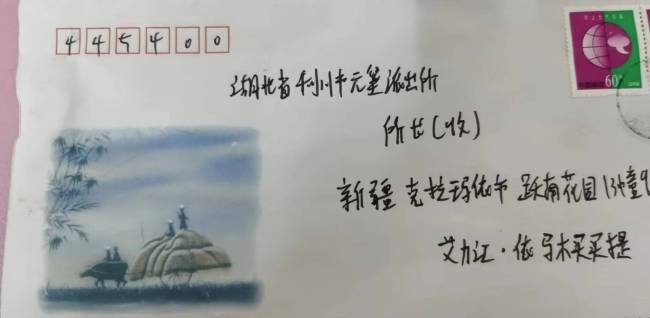 445400
湖北省利川市元堡派出所
所长(收)
新疆克拉玛依市跃南花园13幢9
艾力江·依马木买买提
60